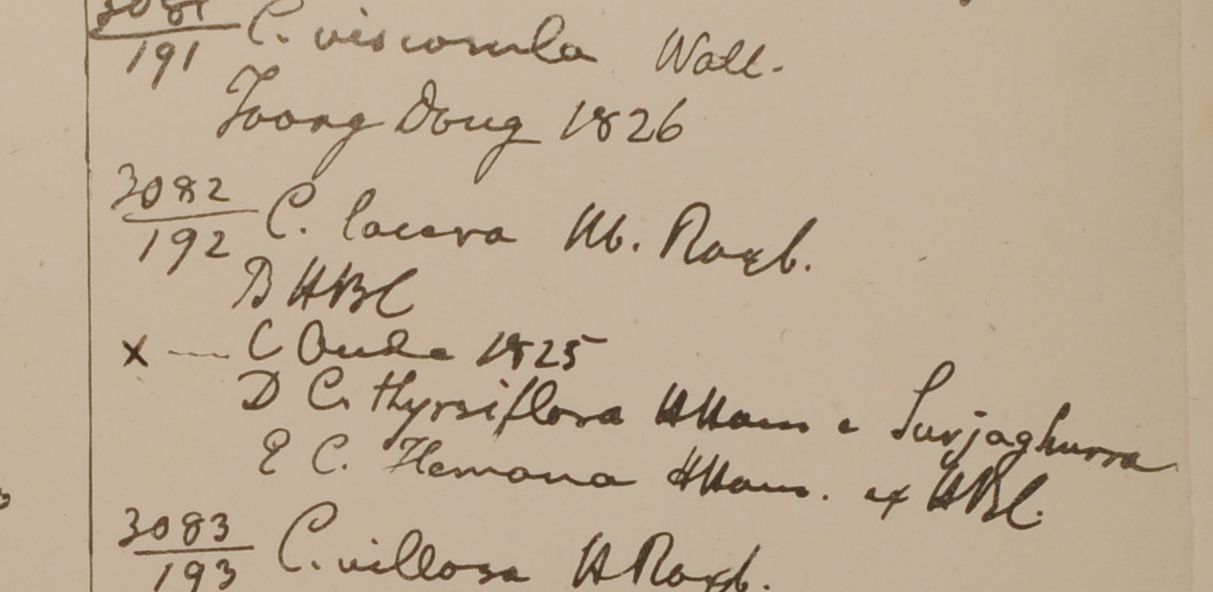 3081/191 C. viscosula Wall.
Toong Dong 1826
3082/192 C. lacera Hb. Roxb.
B HBC
x — C Oude 1825
D C. thyrsiflora HHam e Surjaghurra
E C. Hemona HHam. ex HBC.
3083/193 C. villosa H Roxb.